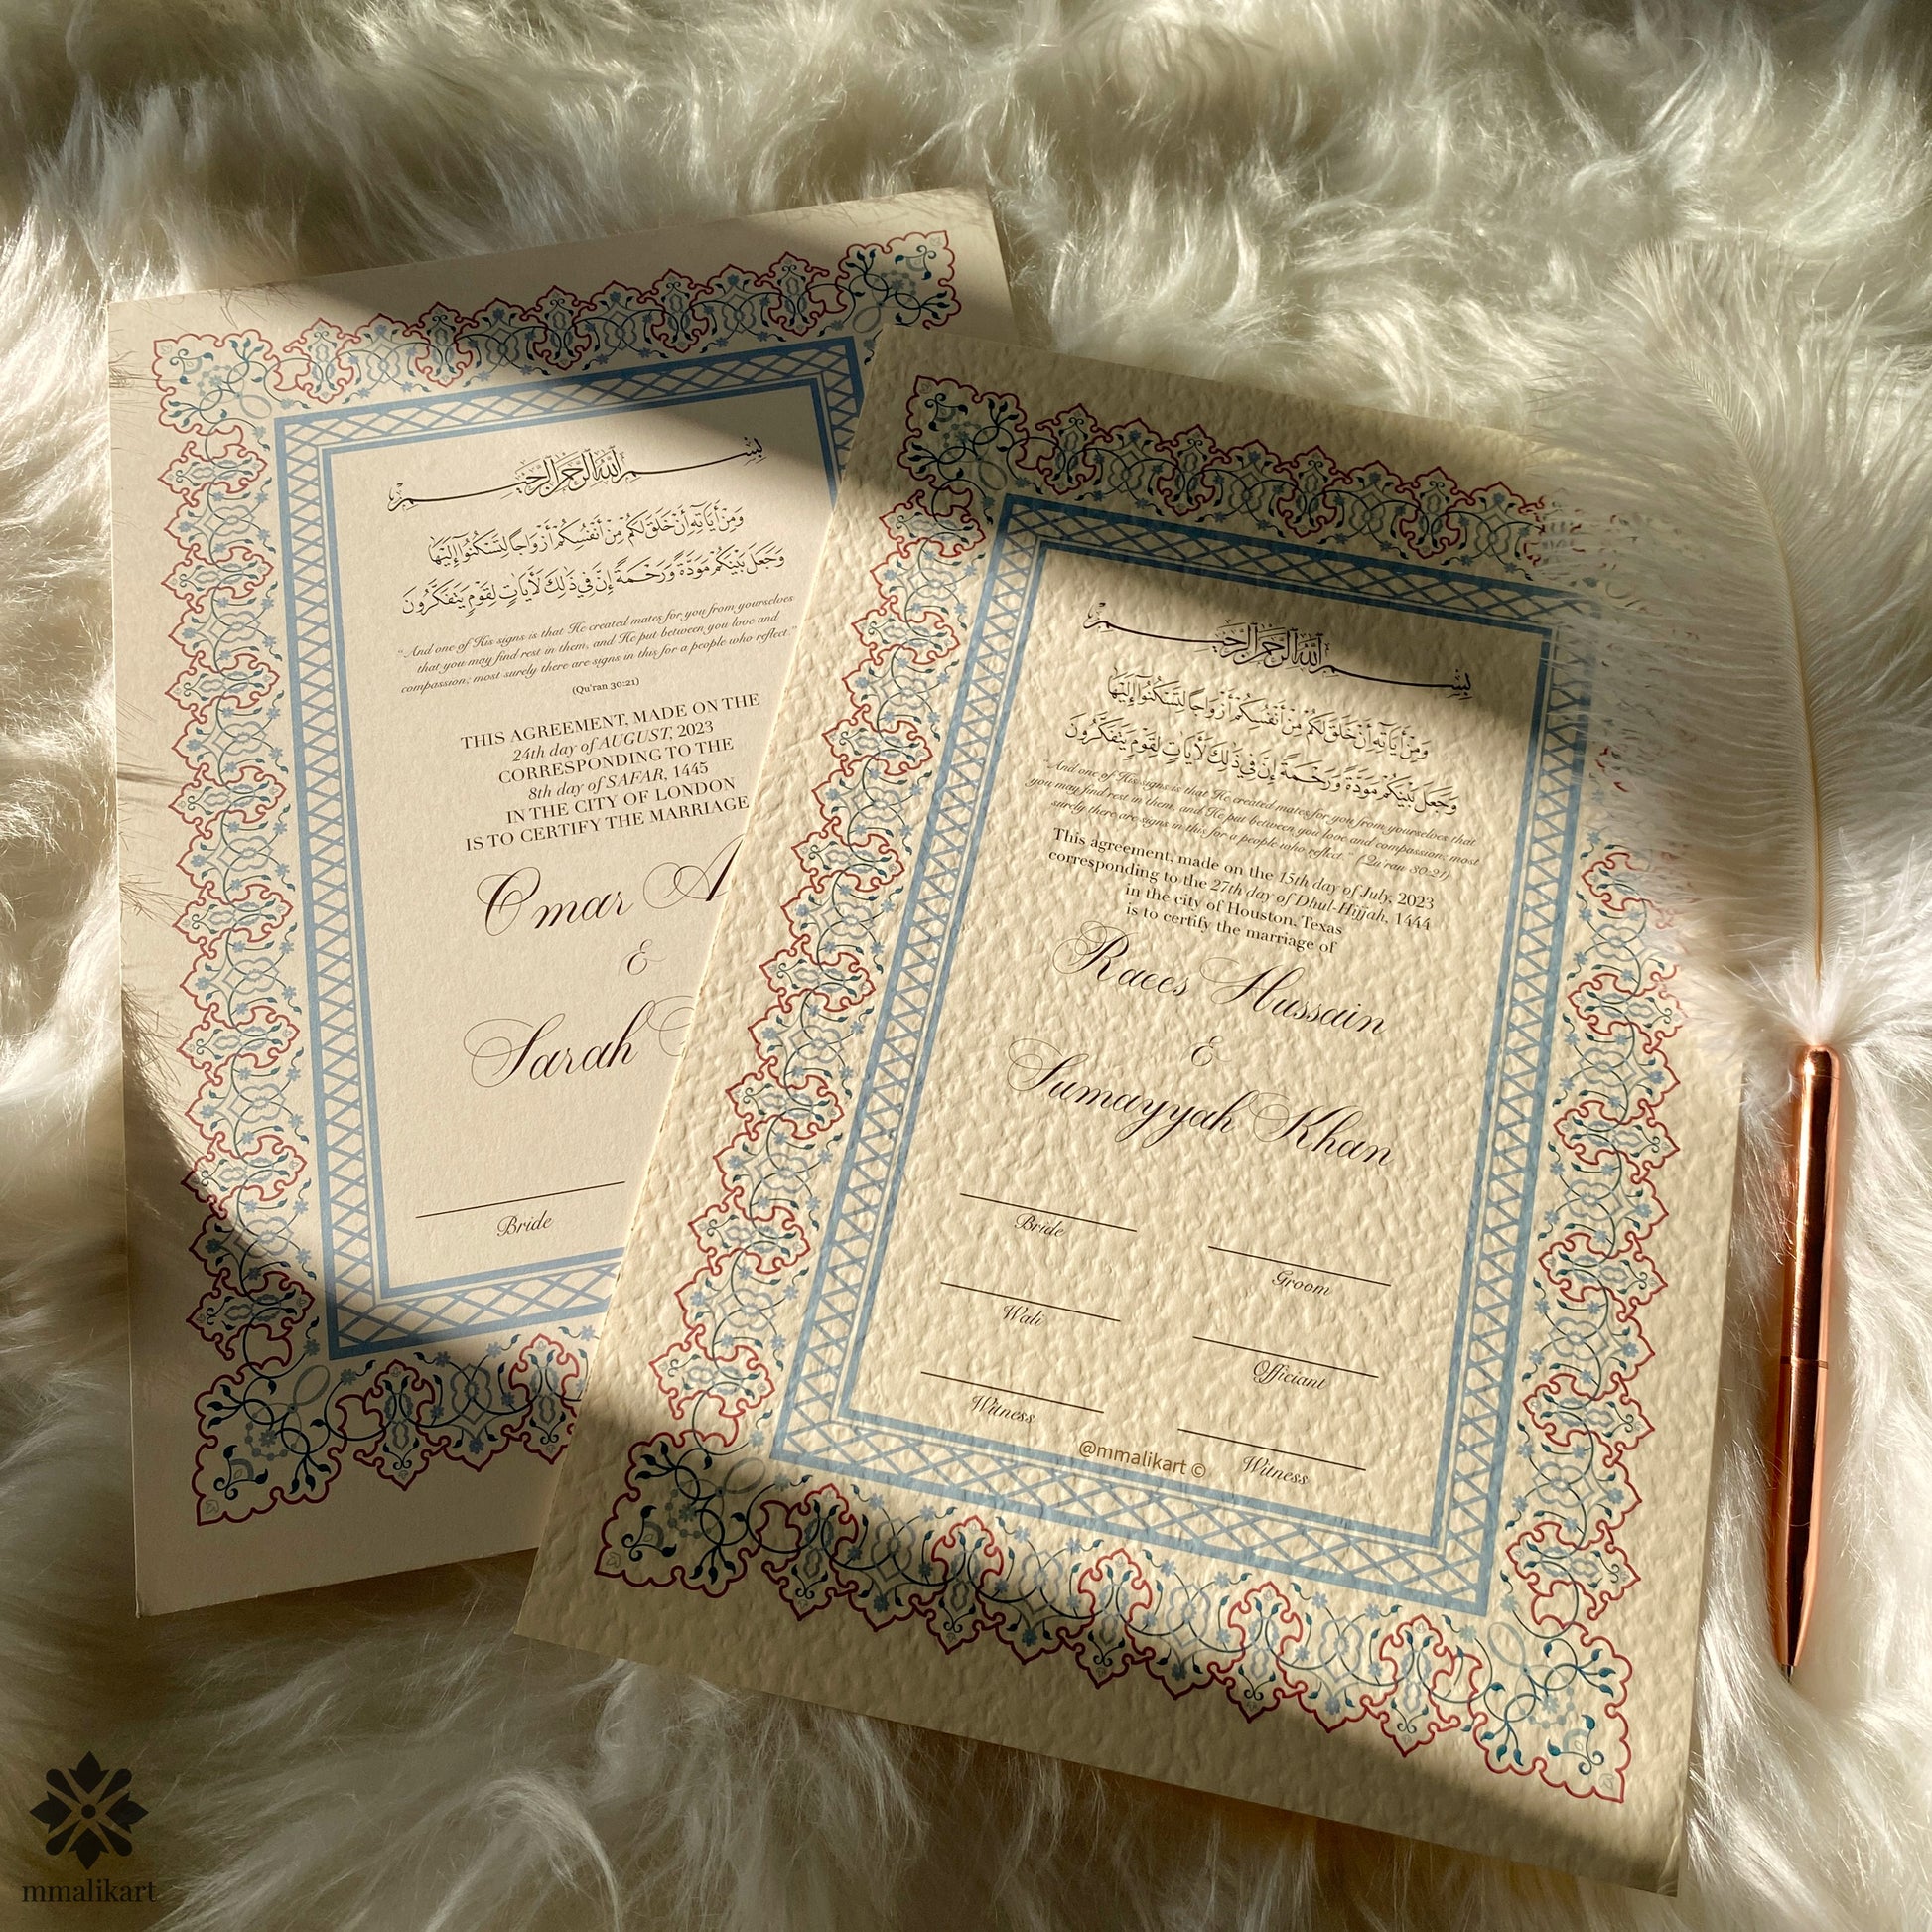 بسم الله الرحمن الرحيم
وَمِنْ آيَاتِهِ أَنْ خَلَقَ لَكُمْ مِنْ أَنْفُسِكُمْ أَزْوَاجًا لِتَسْكُنُوا إِلَيْهَا
وَجَعَلَ بَيْنَكُمْ مَوَدَّةً وَرَحْمَةً إِنَّ فِي ذَلِكَ لَآيَاتٍ لِقَوْمٍ يَتَفَكَّرُونَ
"And one of His signs is that He created mates for you from yourselves
that you may find rest in them, and He put between you love and
compassion; most surely there are signs in this for a people who reflect."
(Qu'ran 30:21)
THIS AGREEMENT, MADE ON THE
24th day of AUGUST, 2023
CORRESPONDING TO THE
8th day of SAFAR, 1445
IN THE CITY OF LONDON
IS TO CERTIFY THE MARRIAGE
Omar A
&
Sarah
Bride
بسم الله الرحمن الرحيم
وَمِنْ آيَاتِهِ أَنْ خَلَقَ لَكُمْ مِنْ أَنْفُسِكُمْ أَزْوَاجًا لِتَسْكُنُوا إِلَيْهَا
وَجَعَلَ بَيْنَكُمْ مَوَدَّةً وَرَحْمَةً إِنَّ فِي ذَلِكَ لَآيَاتٍ لِقَوْمٍ يَتَفَكَّرُونَ
"And one of His signs is that He created mates for you from yourselves that
you may find rest in them, and He put between you love and compassion; most
surely there are signs in this for a people who reflect." (Qu'ran 30:21)
This agreement, made on the 15th day of July, 2023
corresponding to the 27th day of Dhul-Hijjah, 1444
in the city of Houston, Texas
is to certify the marriage of
Raees Hussain
&
Sumayyah Khan
Bride
Groom
Wali
Officiant
Witness
Witness
@mmalikart ©
mmalikart